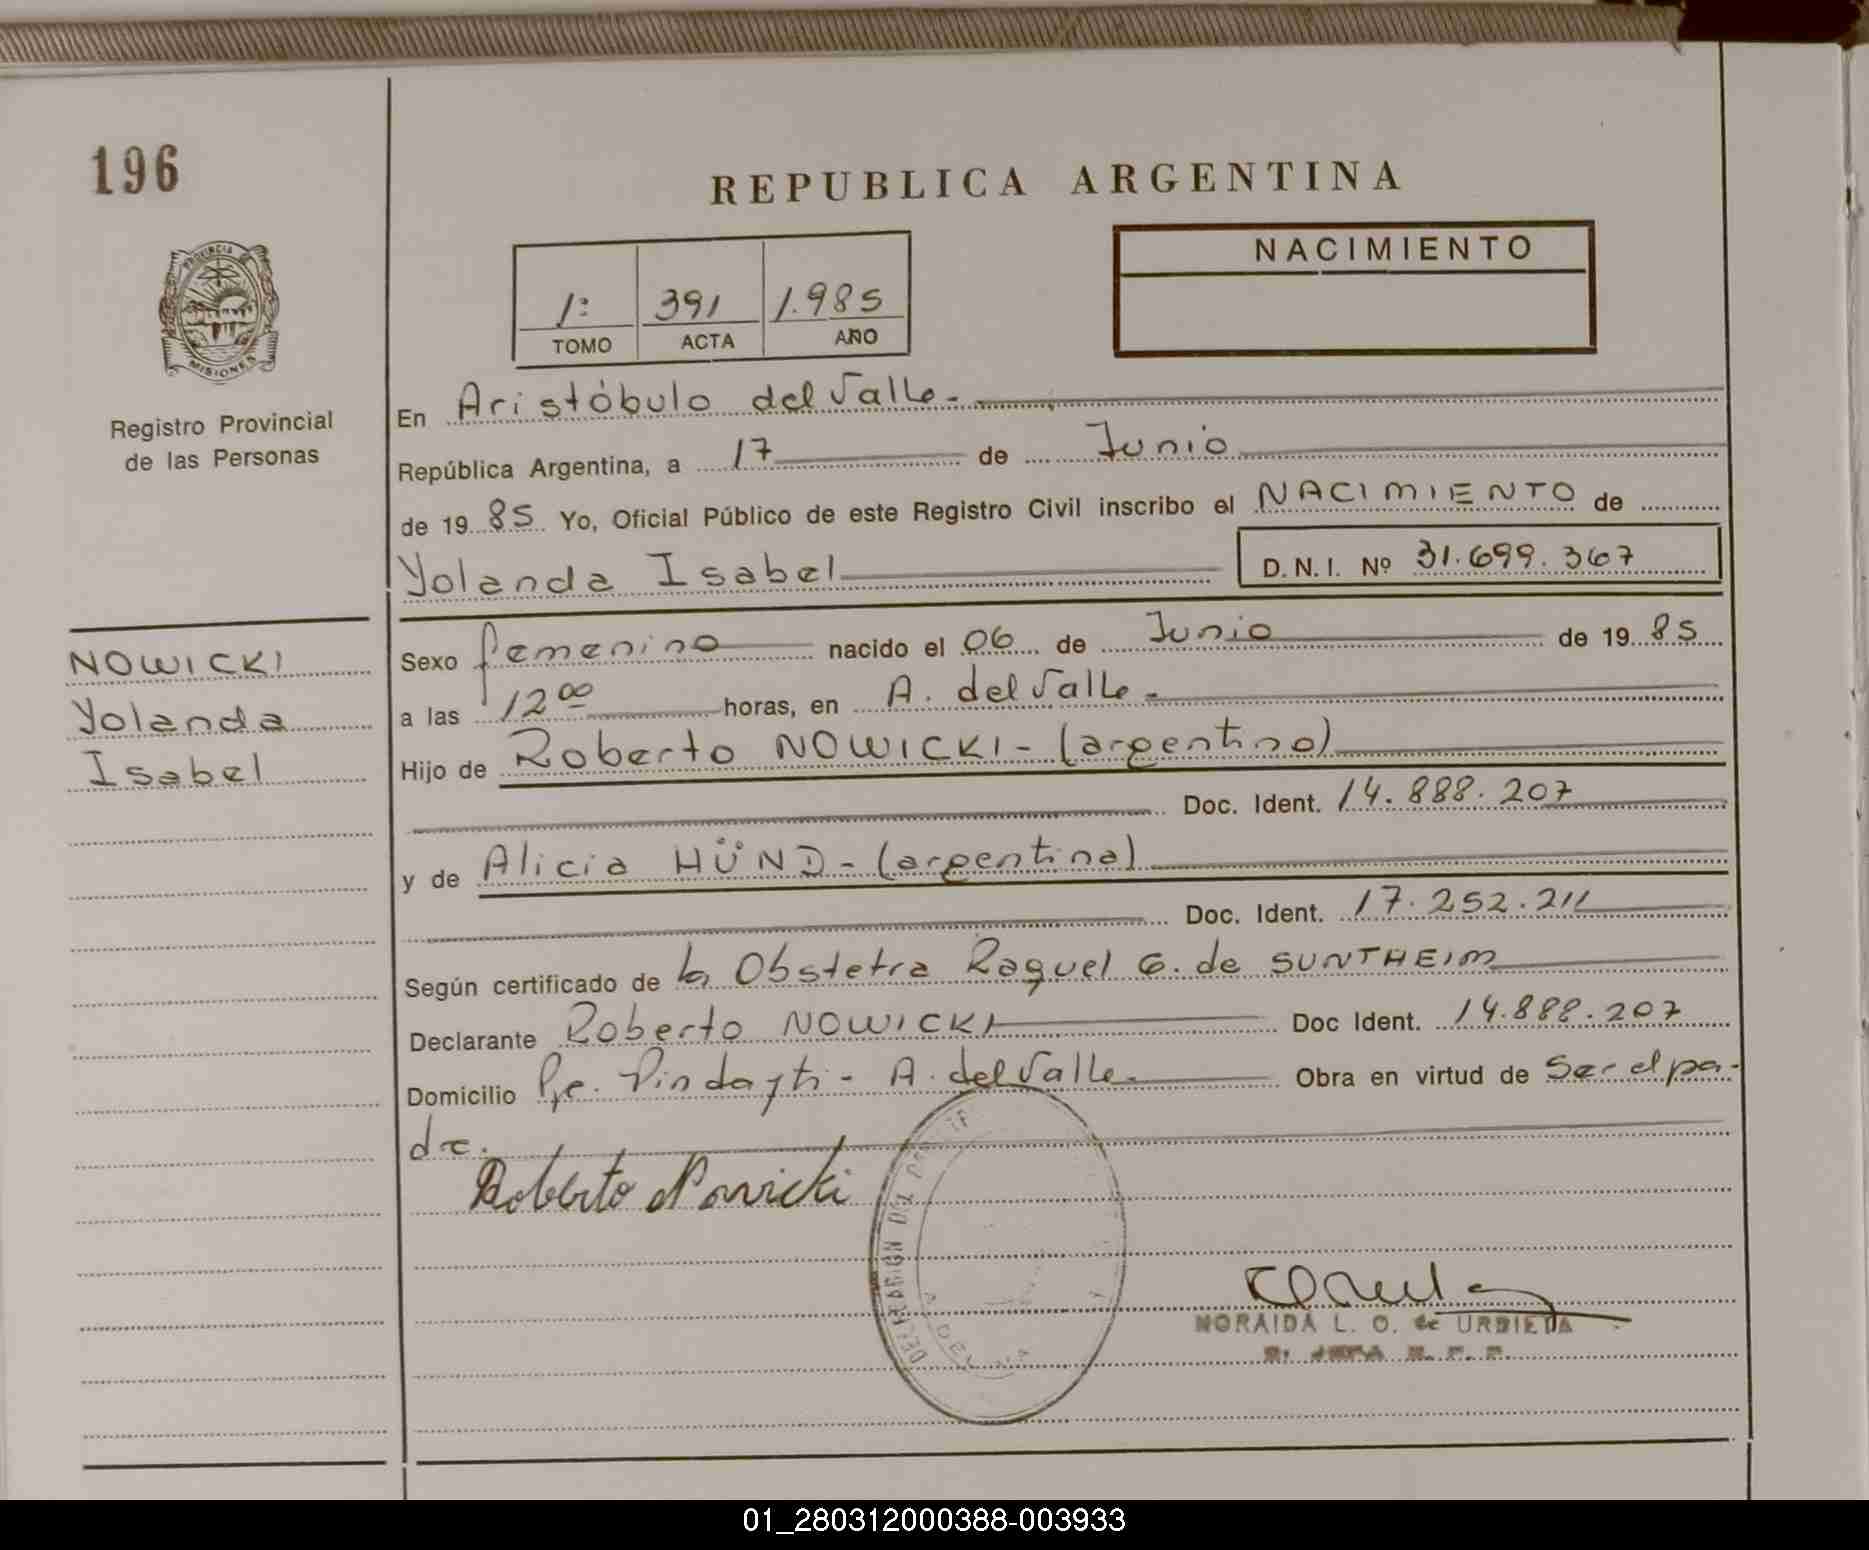 196
REPUBLICA ARGENTINA
PROVINCIA DE
MISIONES
Registro Provincial
de las Personas
NOWICKI
Yolanda
Isabel
1: 391 1.985
TOMO ACTA AÑO
NACIMIENTO
En Aristóbulo del Valle.-
República Argentina, a 17 de Junio
de 1985 Yo, Oficial Público de este Registro Civil inscribo el NACIMIENTO de
Yolanda Isabel D.N.I. Nº 31.699.367
Sexo femenino nacido el 06 de Junio de 1985
a las 12 00 horas, en A. del Valle.-
Hijo de Roberto NOWICKI - (argentino)
Doc. Ident. 14.888.207
y de Alicia HÜND - (argentina)
Doc. Ident. 17.252.211
Según certificado de la Obstetra Raquel G. de SUNTHEIM
Declarante Roberto NOWICKI Doc Ident. 14.888.207
Domicilio A. del Valle.- Obra en virtud de Ser el pa-
dre.
Roberto Nowicki
DELEGACION DEL
A. DEL
NORAIDA L. O. de URBIETA
JEFA
01_280312000388-003933